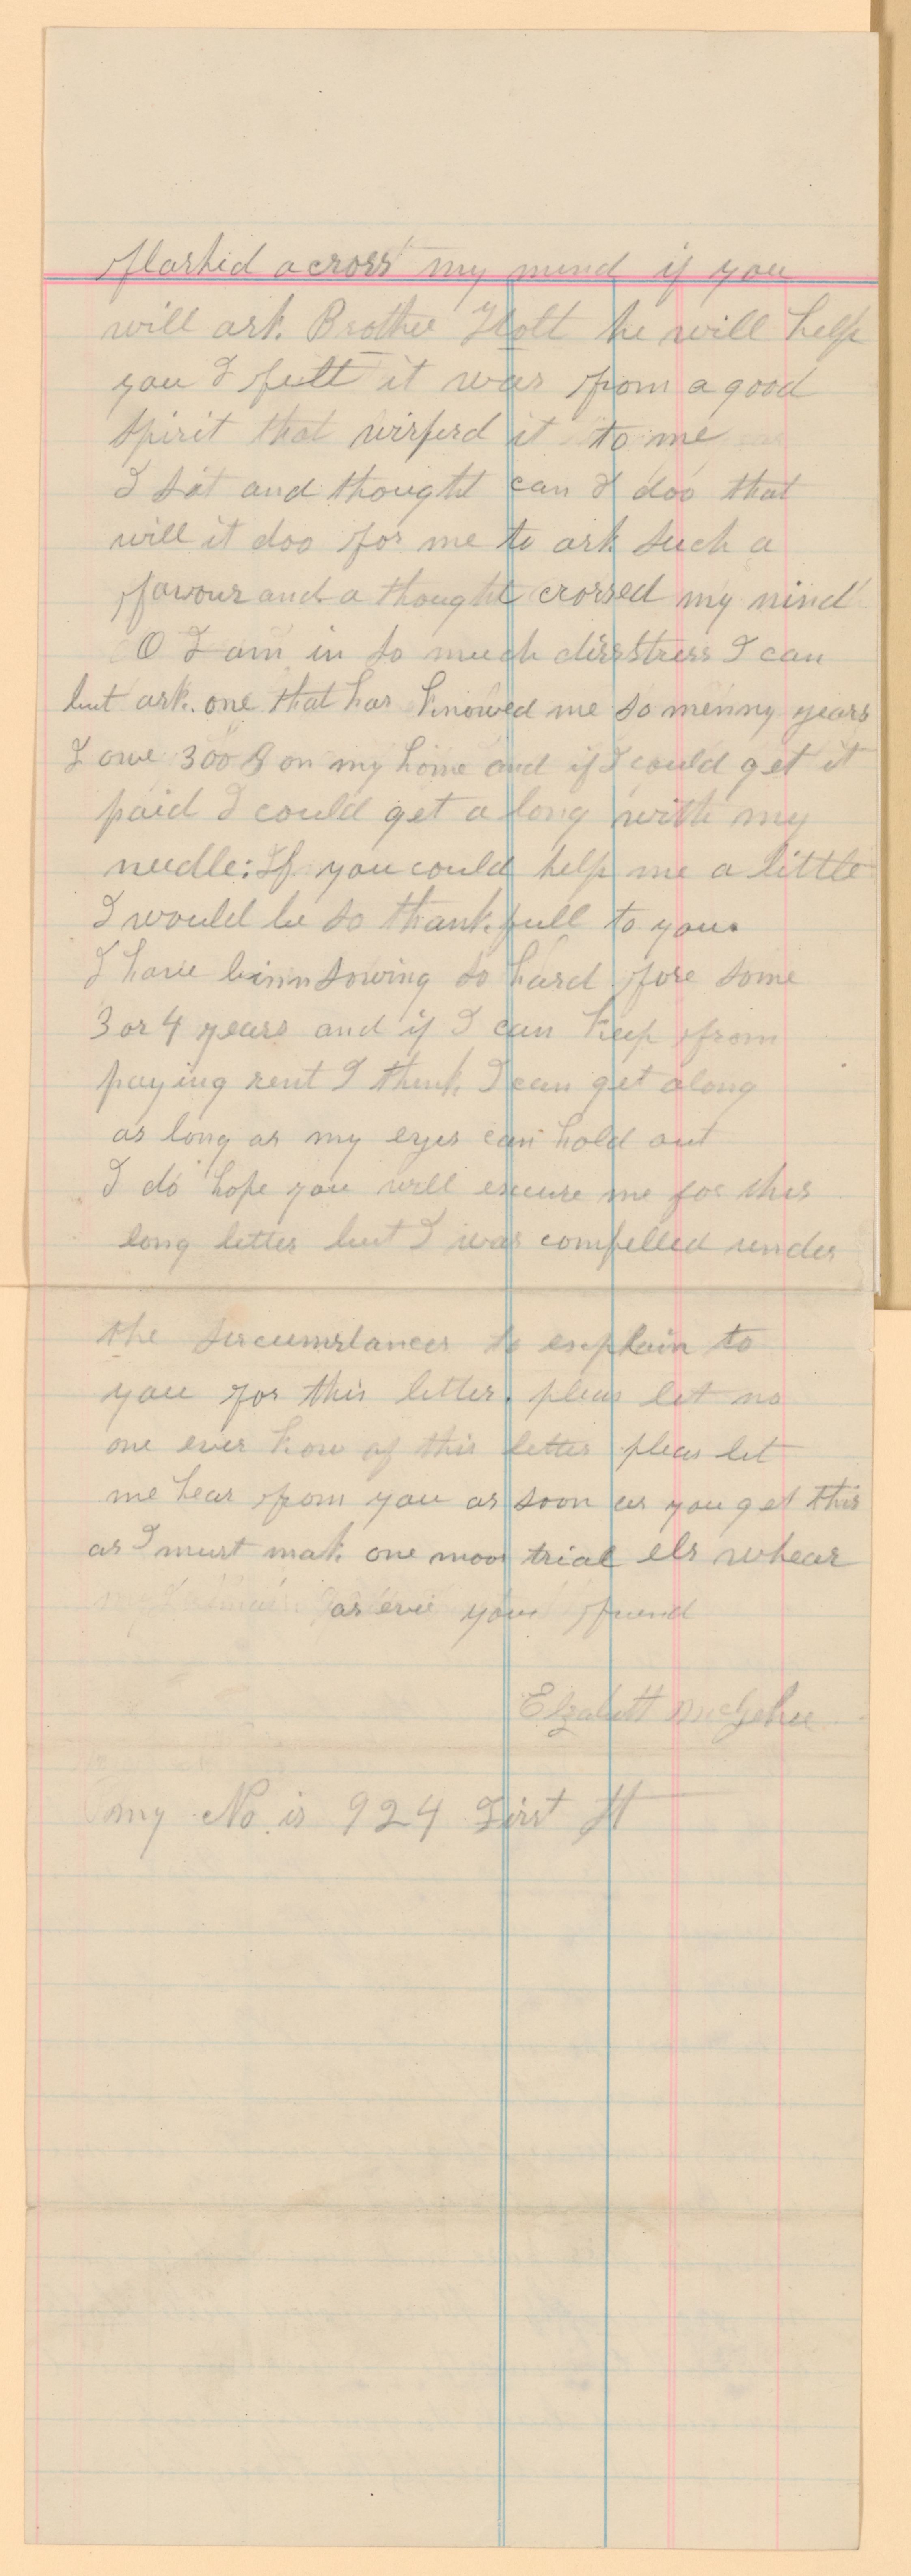 flashid across my mind if you
will ask Brother Holt he will help
you I fult it was from a good
spirit that wisperd it to me
I sat and thought can I doo that
will it doo for me to ask such a
favour and a thought crorsed my mind
O I am in so much disstress I can
but ask one that has knowed me so menny years
I owe 300 $ on my home and if I could get it
paid I could get a long with my
needle: If you could help me a little
I would be so thankfull to you.
I have binn sowing so hard fore some
3 or 4 years and if I can keep from
paying rent I think I can get along
as long as my eyes can hold out
I do hope you will excuse me for this
long letter but I was compelled under
the sircumstances to explain to
you for this letter. pleas let no
one ever know of this letter pleas let
me hear from you as soon as you get this
as I must mak one moor trial els whear
as ever your friend
Elzabeth McGehee
my No. is 924 First St